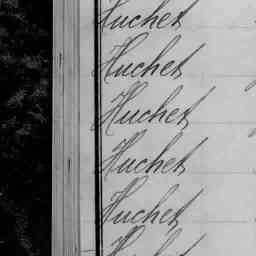 Huchet
Huchet
Huchet
Huchet
Huchet